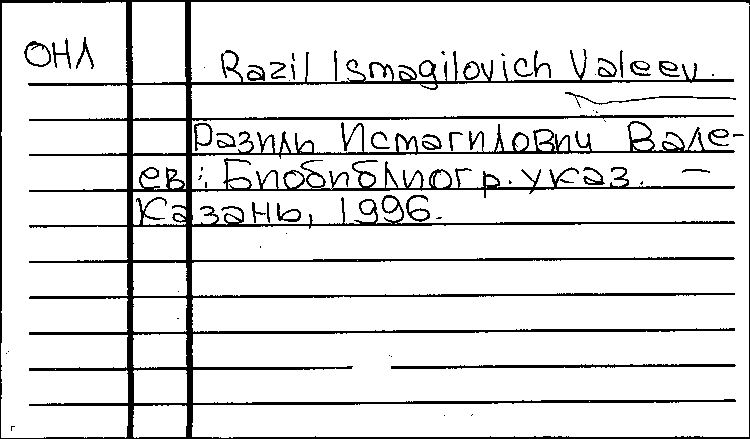 ОНЛ
Razil Ismagilovich Valeev.
Разиль Исмагилович Вале-
ев: Биобиблиогр. указ. –
Казань, 1996.